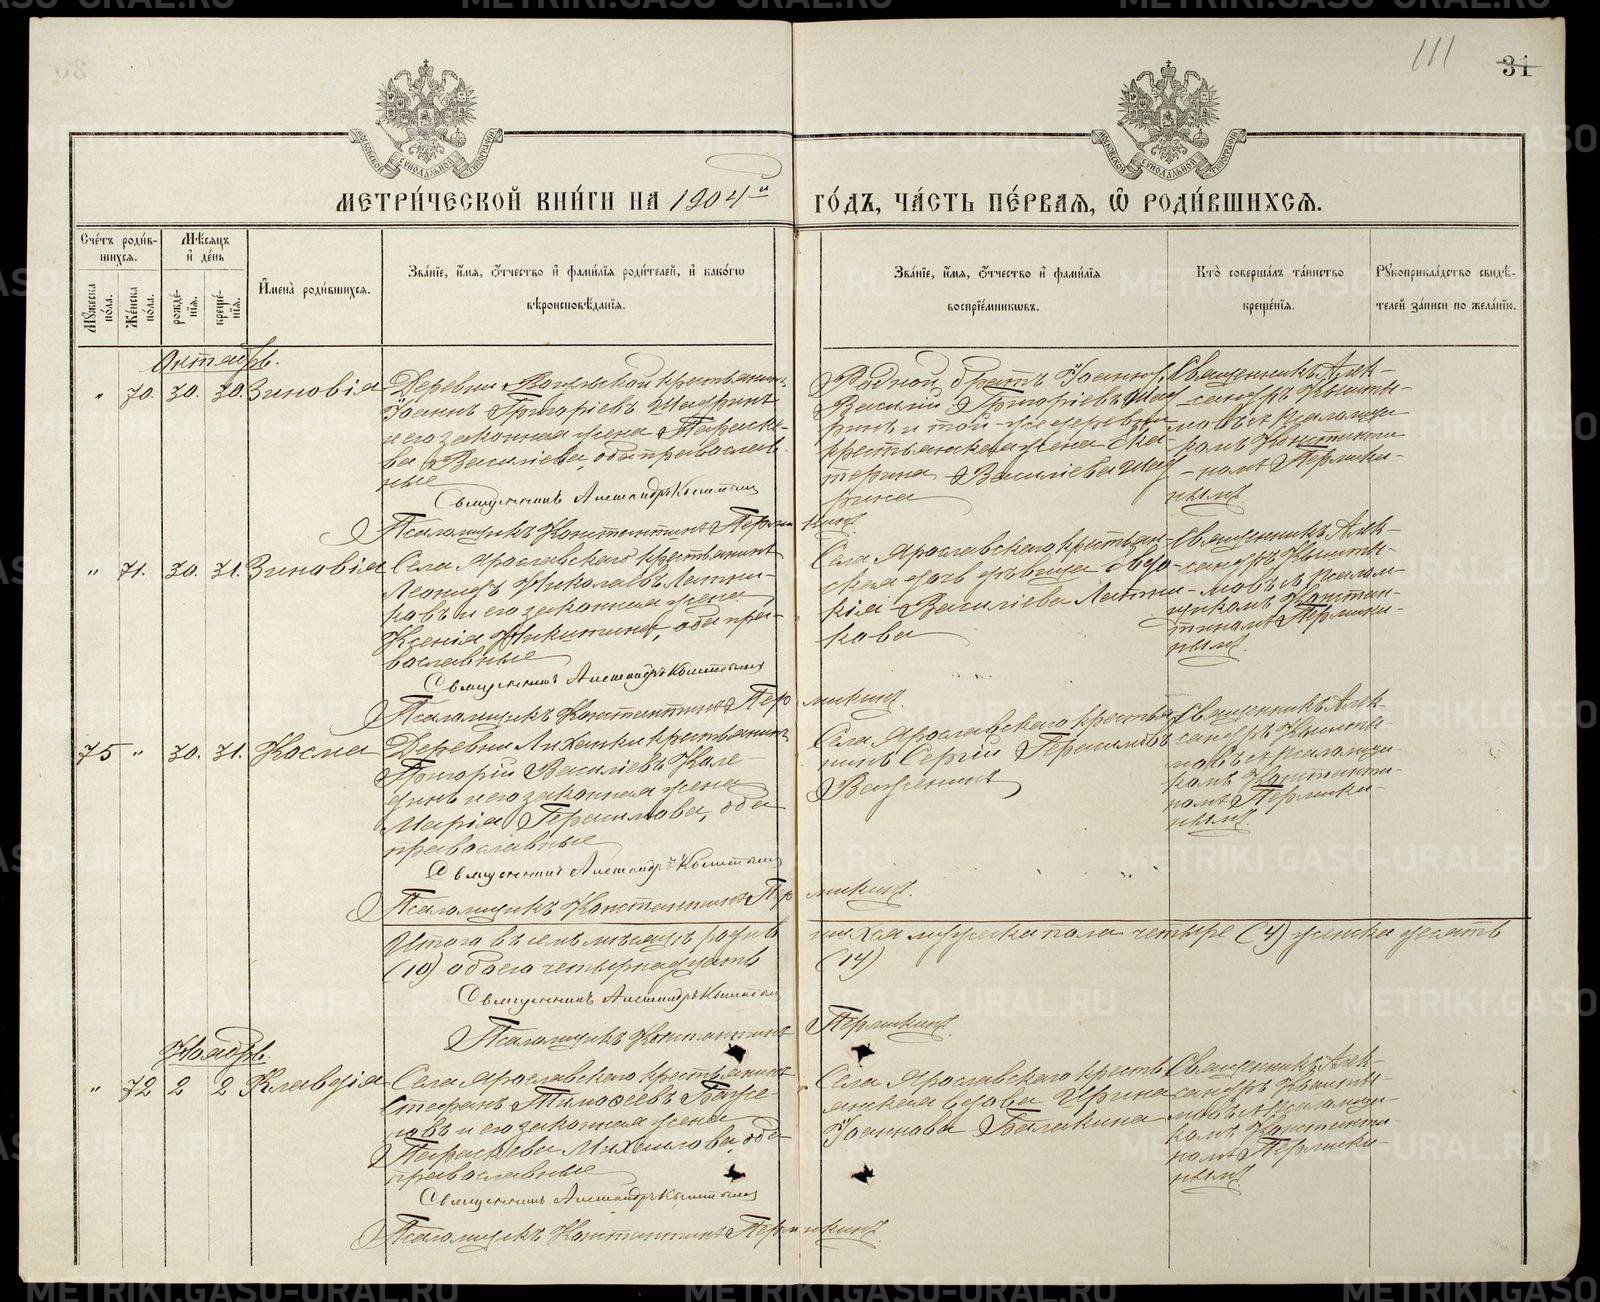 111
31
МОСКОВСКОЙ СѴНОДАЛЬНОЙ ТИПОГРАФІИ
МОСКОВСКОЙ СѴНОДАЛЬНОЙ ТИПОГРАФІИ
МЕТРИ́ЧЕСКОЙ КНИ́ГИ НА 1904й ГО́ДЪ, ЧА́СТЬ ПЕ́РВАѦ, Ѡ҆ РОДИ́ВШИХСѦ.
Сче́тъ роди́в-
шихсѧ.
Мꙋ́жеска по́ла.
Же́нска по́ла.
Мѣ́сѧцъ
и҆ де́нь
рожде́-
нїѧ.
креще́-
нїѧ.
И҆мена̀ роди́вшихсѧ.
Зва́нїе, и҆́мѧ, ѻ҆́тчество и҆ фами́лїѧ роди́телей, и҆ како́гѡ
вѣроисповѣ́данїѧ.
Зва́нїе, и҆́мѧ, ѻ҆́тчество и҆ фами́лїѧ
воспрїе́мникѡвъ.
Кто̀ соверша́лъ та́инство
креще́нїѧ.
Рꙋкоприкла́дство свидѣ́-
телей за́писи по жела́нїю.
Октябрь.
" 70. 30. 30. Зиновія
Деревни крестьянинъ
Іоаннъ Григоріевъ Шадринъ
и его законная жена Параске-
ва Василіева, оба православ-
ные
Священникъ Александръ
Псаломщикъ Константинъ Пермикинъ
Родной братъ Іоанна,
Василій Григоріевъ Шад-
ринъ и той-же деревни
крестьянская жена Ека-
терина Василіева Шад-
рина
Священникъ Алек-
сандръ
мовъ съ псаломщи-
комъ Константи-
номъ Пермики-
нымъ.
" 71. 30. 31. Зиновія
Села Ярославскаго крестьянинъ
Леонидъ Николаевъ Латни-
ковъ и его законная жена
Ксенія Никитина, оба пра-
вославные
Священникъ Александръ
Псаломщикъ Константинъ Пермикинъ.
Села Ярославскаго крестьян-
ская дочь дѣвица Евдо-
кія Василіева Латни-
кова
Священникъ Алек-
сандръ
мовъ съ псалом-
щикомъ Констан-
тиномъ Пермики-
нымъ.
75 " 30. 31. Косма
Деревни Лиханки крестьянинъ
Григорій Василіевъ Коле-
динъ и его законная жена
Марія Герасимова, оба
православные
Священникъ Александръ
Псаломщикъ Константинъ Пермикинъ.
Села Ярославскаго крестья-
нинъ Сергій Герасимовъ
Важенинъ
Священникъ Алек-
сандръ
мовъ съ псаломщи-
комъ Константи-
номъ Пермики-
нымъ.
Итого въ семъ мѣсяцѣ родив шихся мужеска пола четыре (4) женска десять
(10) обоего четырнадцать (14)
Священникъ Александръ
Псаломщикъ Константинъ Пермикинъ.
Ноябрь.
" 72 2 2 Клавдія
Села Ярославскаго крестьянинъ
Стефанъ Тимоѳеевъ Баже-
новъ и его законная жена
Параскева Михаилова, оба
православные
Священникъ Александръ
Псаломщикъ Константинъ Пермикинъ.
Села Ярославскаго кресть-
янская вдова Ирина
Іоаннова Балакина
Священникъ Алек-
сандръ
мовъ съ псаломщи-
комъ Константи-
номъ Пермики-
нымъ.
METRIKI.GASO-URAL.RU